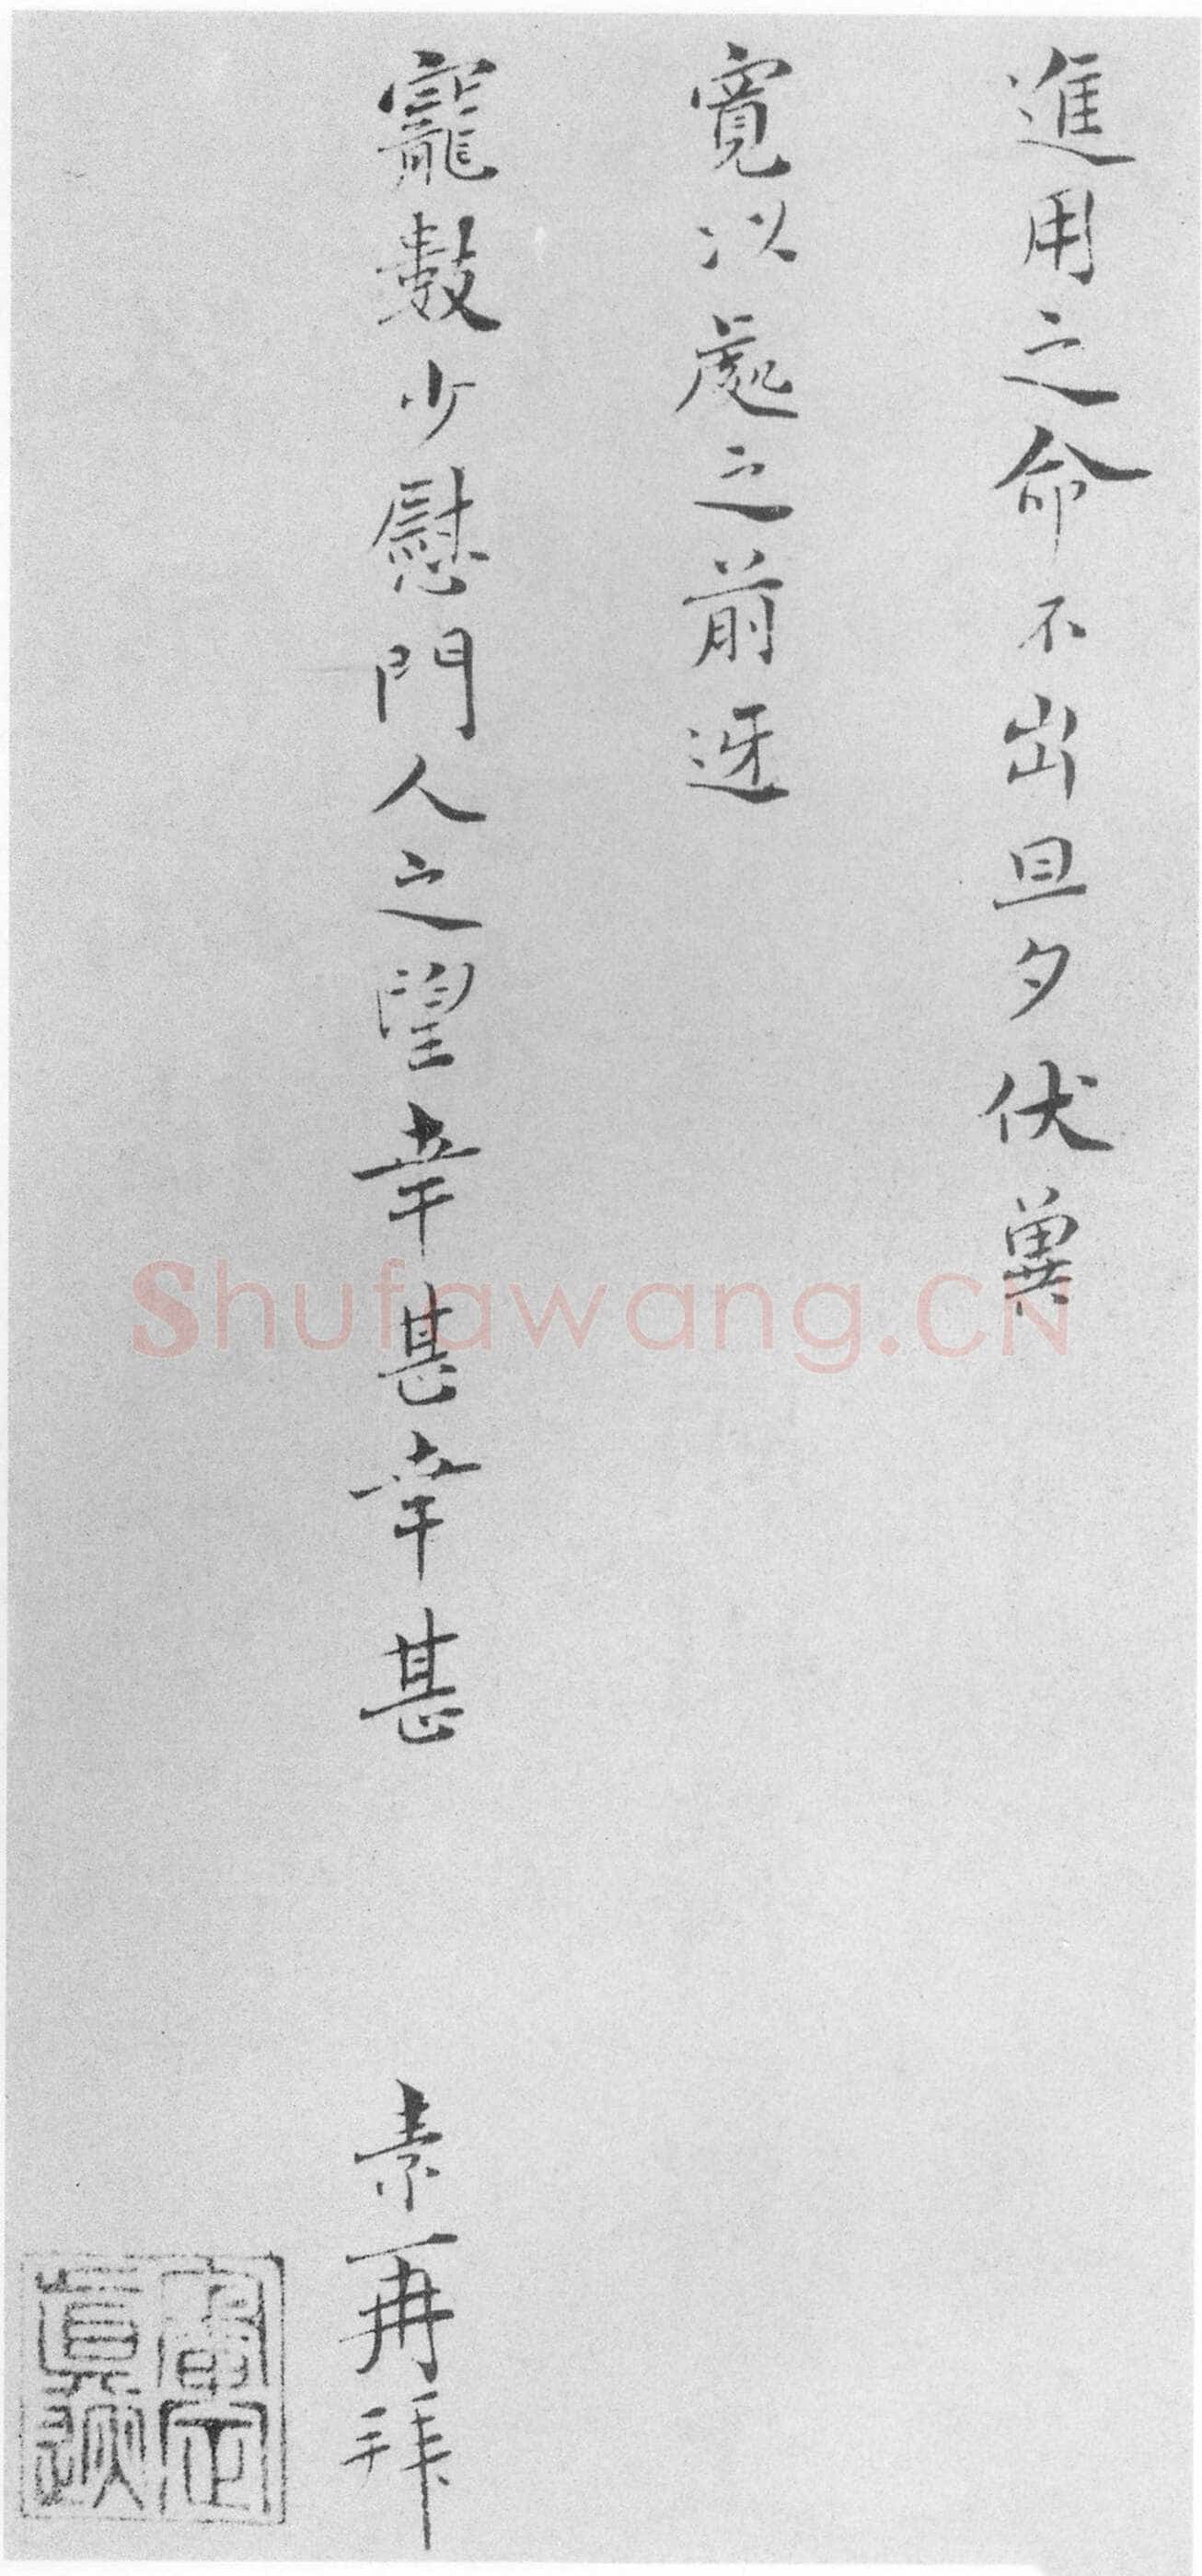 進用之命不出旦夕伏冀
寬以處之前迓
寵數少慰門人之望幸甚幸甚 素再拜
Shufawang.CN